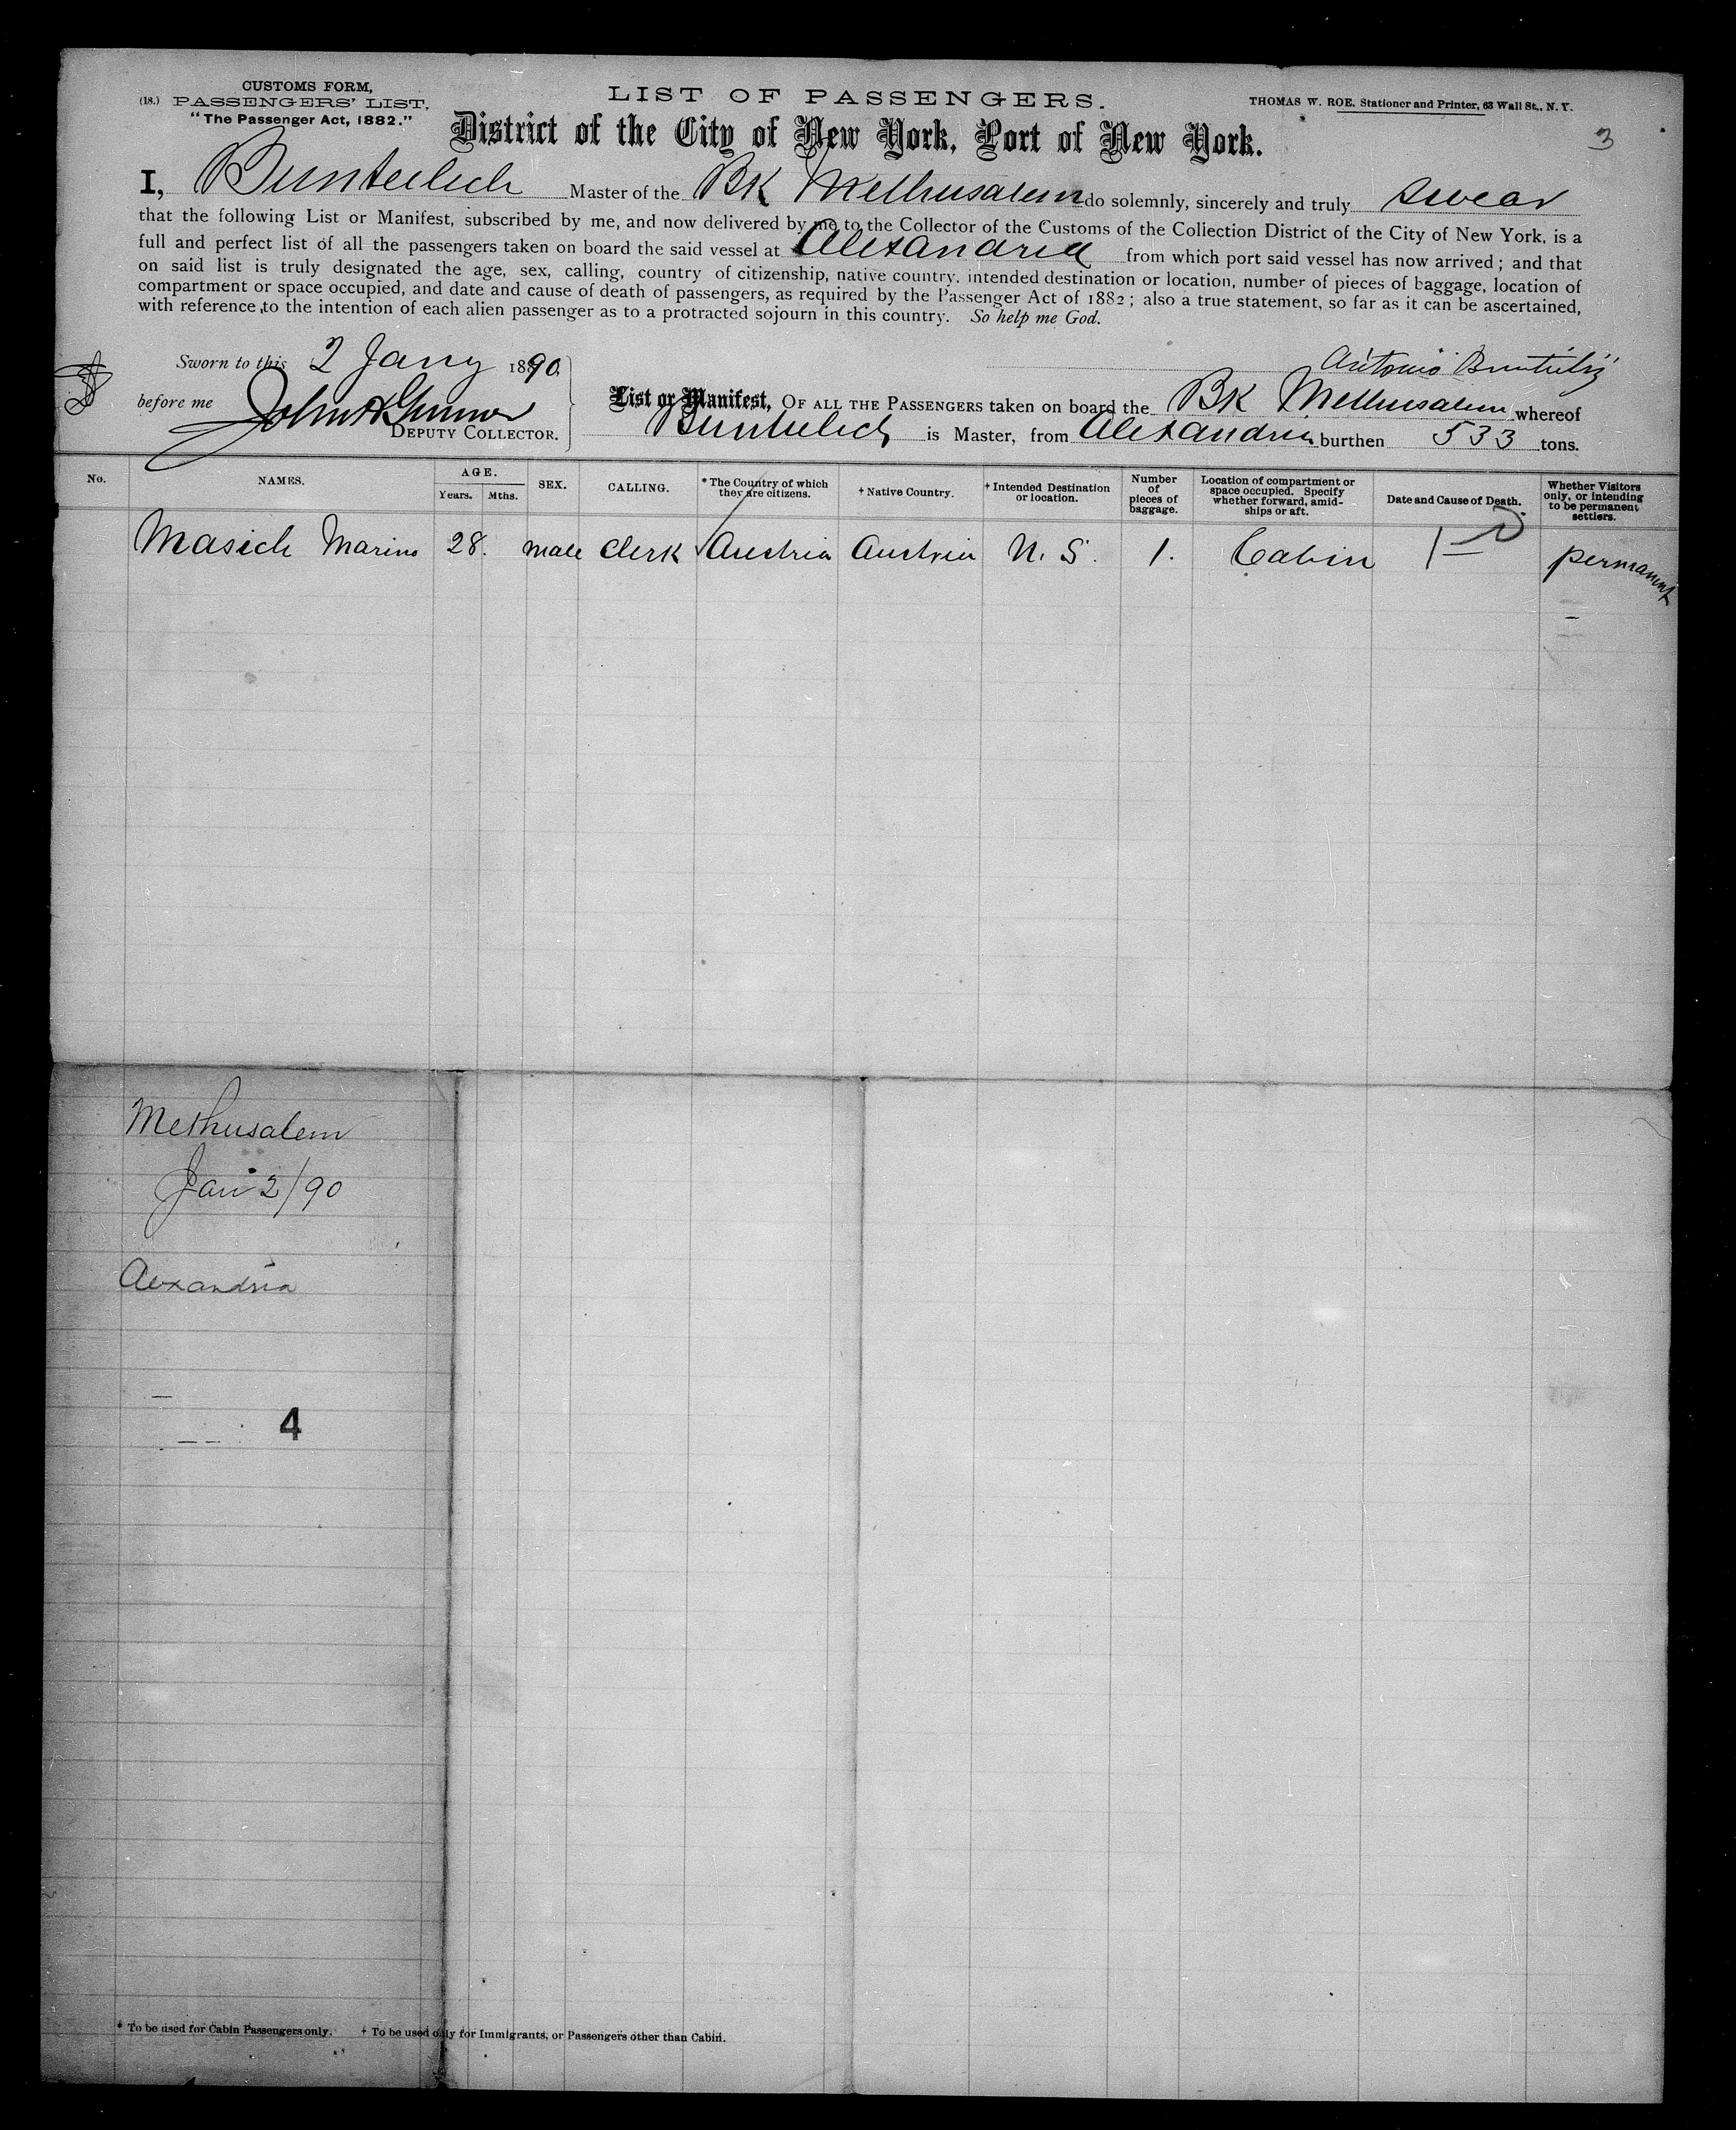 CUSTOMS FORM,
(18.) PASSENGERS' LIST.
"The Passenger Act, 1882."
LIST OF PASSENGERS.
THOMAS W. ROE, Stationer and Printer, 63 Wall St., N. Y.
3
District of the City of New York, Port of New York.
I, Buntielich Master of the BK Methusalem do solemnly, sincerely and truly swear
that the following List or Manifest, subscribed by me, and now delivered by me to the Collector of the Customs of the Collection District of the City of New York, is a
full and perfect list of all the passengers taken on board the said vessel at Alexandria from which port said vessel has now arrived; and that
on said list is truly designated the age, sex, calling, country of citizenship, native country, intended destination or location, number of pieces of baggage, location of
compartment or space occupied, and date and cause of death of passengers, as required by the Passenger Act of 1882; also a true statement, so far as it can be ascertained,
with reference to the intention of each alien passenger as to a protracted sojourn in this country. So help me God.
Sworn to this 2 Jany 1890
Antonio
before me John
DEPUTY COLLECTOR.
List or Manifest, OF ALL THE PASSENGERS taken on board the BK Methusalem whereof
Buntielich is Master, from Alexandria burthen 533 tons.
No. NAMES. AGE. Years. Mths. SEX. CALLING. * The Country of which they are citizens. + Native Country. + Intended Destination or location. Number of pieces of baggage. Location of compartment or space occupied. Specify whether forward, amidships or aft. Date and Cause of Death. Whether Visitors only, or intending to be permanent settlers.
Masich Marino 28. male Clerk Austria Austria N. S. 1. Cabin permanent
Methusalem
Jan 2/90
Alexandria
4
* To be used for Cabin Passengers only. + To be used only for Immigrants, or Passengers other than Cabin.